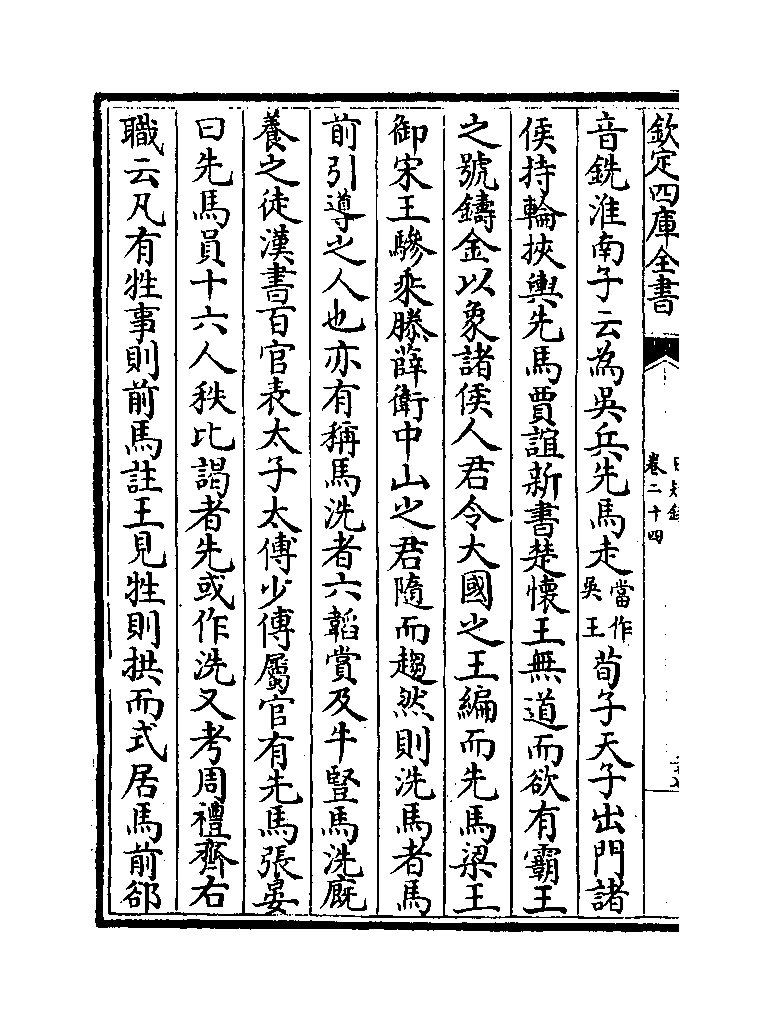 欽定四庫全書
卷二十四
音銑淮南子云為吳兵先馬走當作吳王荀子天子出門諸
侯持輪挾輿先馬賈誼新書楚懷王無道而欲有霸王
之號鑄金以象諸侯人君令大國之王編而先馬梁王
御宋王驂乘滕薛衛中山之君隨而趨然則洗馬者馬
前引導之人也亦有稱馬洗者六韜賞及牛豎馬洗廐
養之徒漢書百官表太子太傅少傅屬官有先馬張晏
曰先馬員十六人秩比謁者先或作洗又考周禮齊右
職云凡有牲事則前馬註王見牲則拱而式居馬前郤